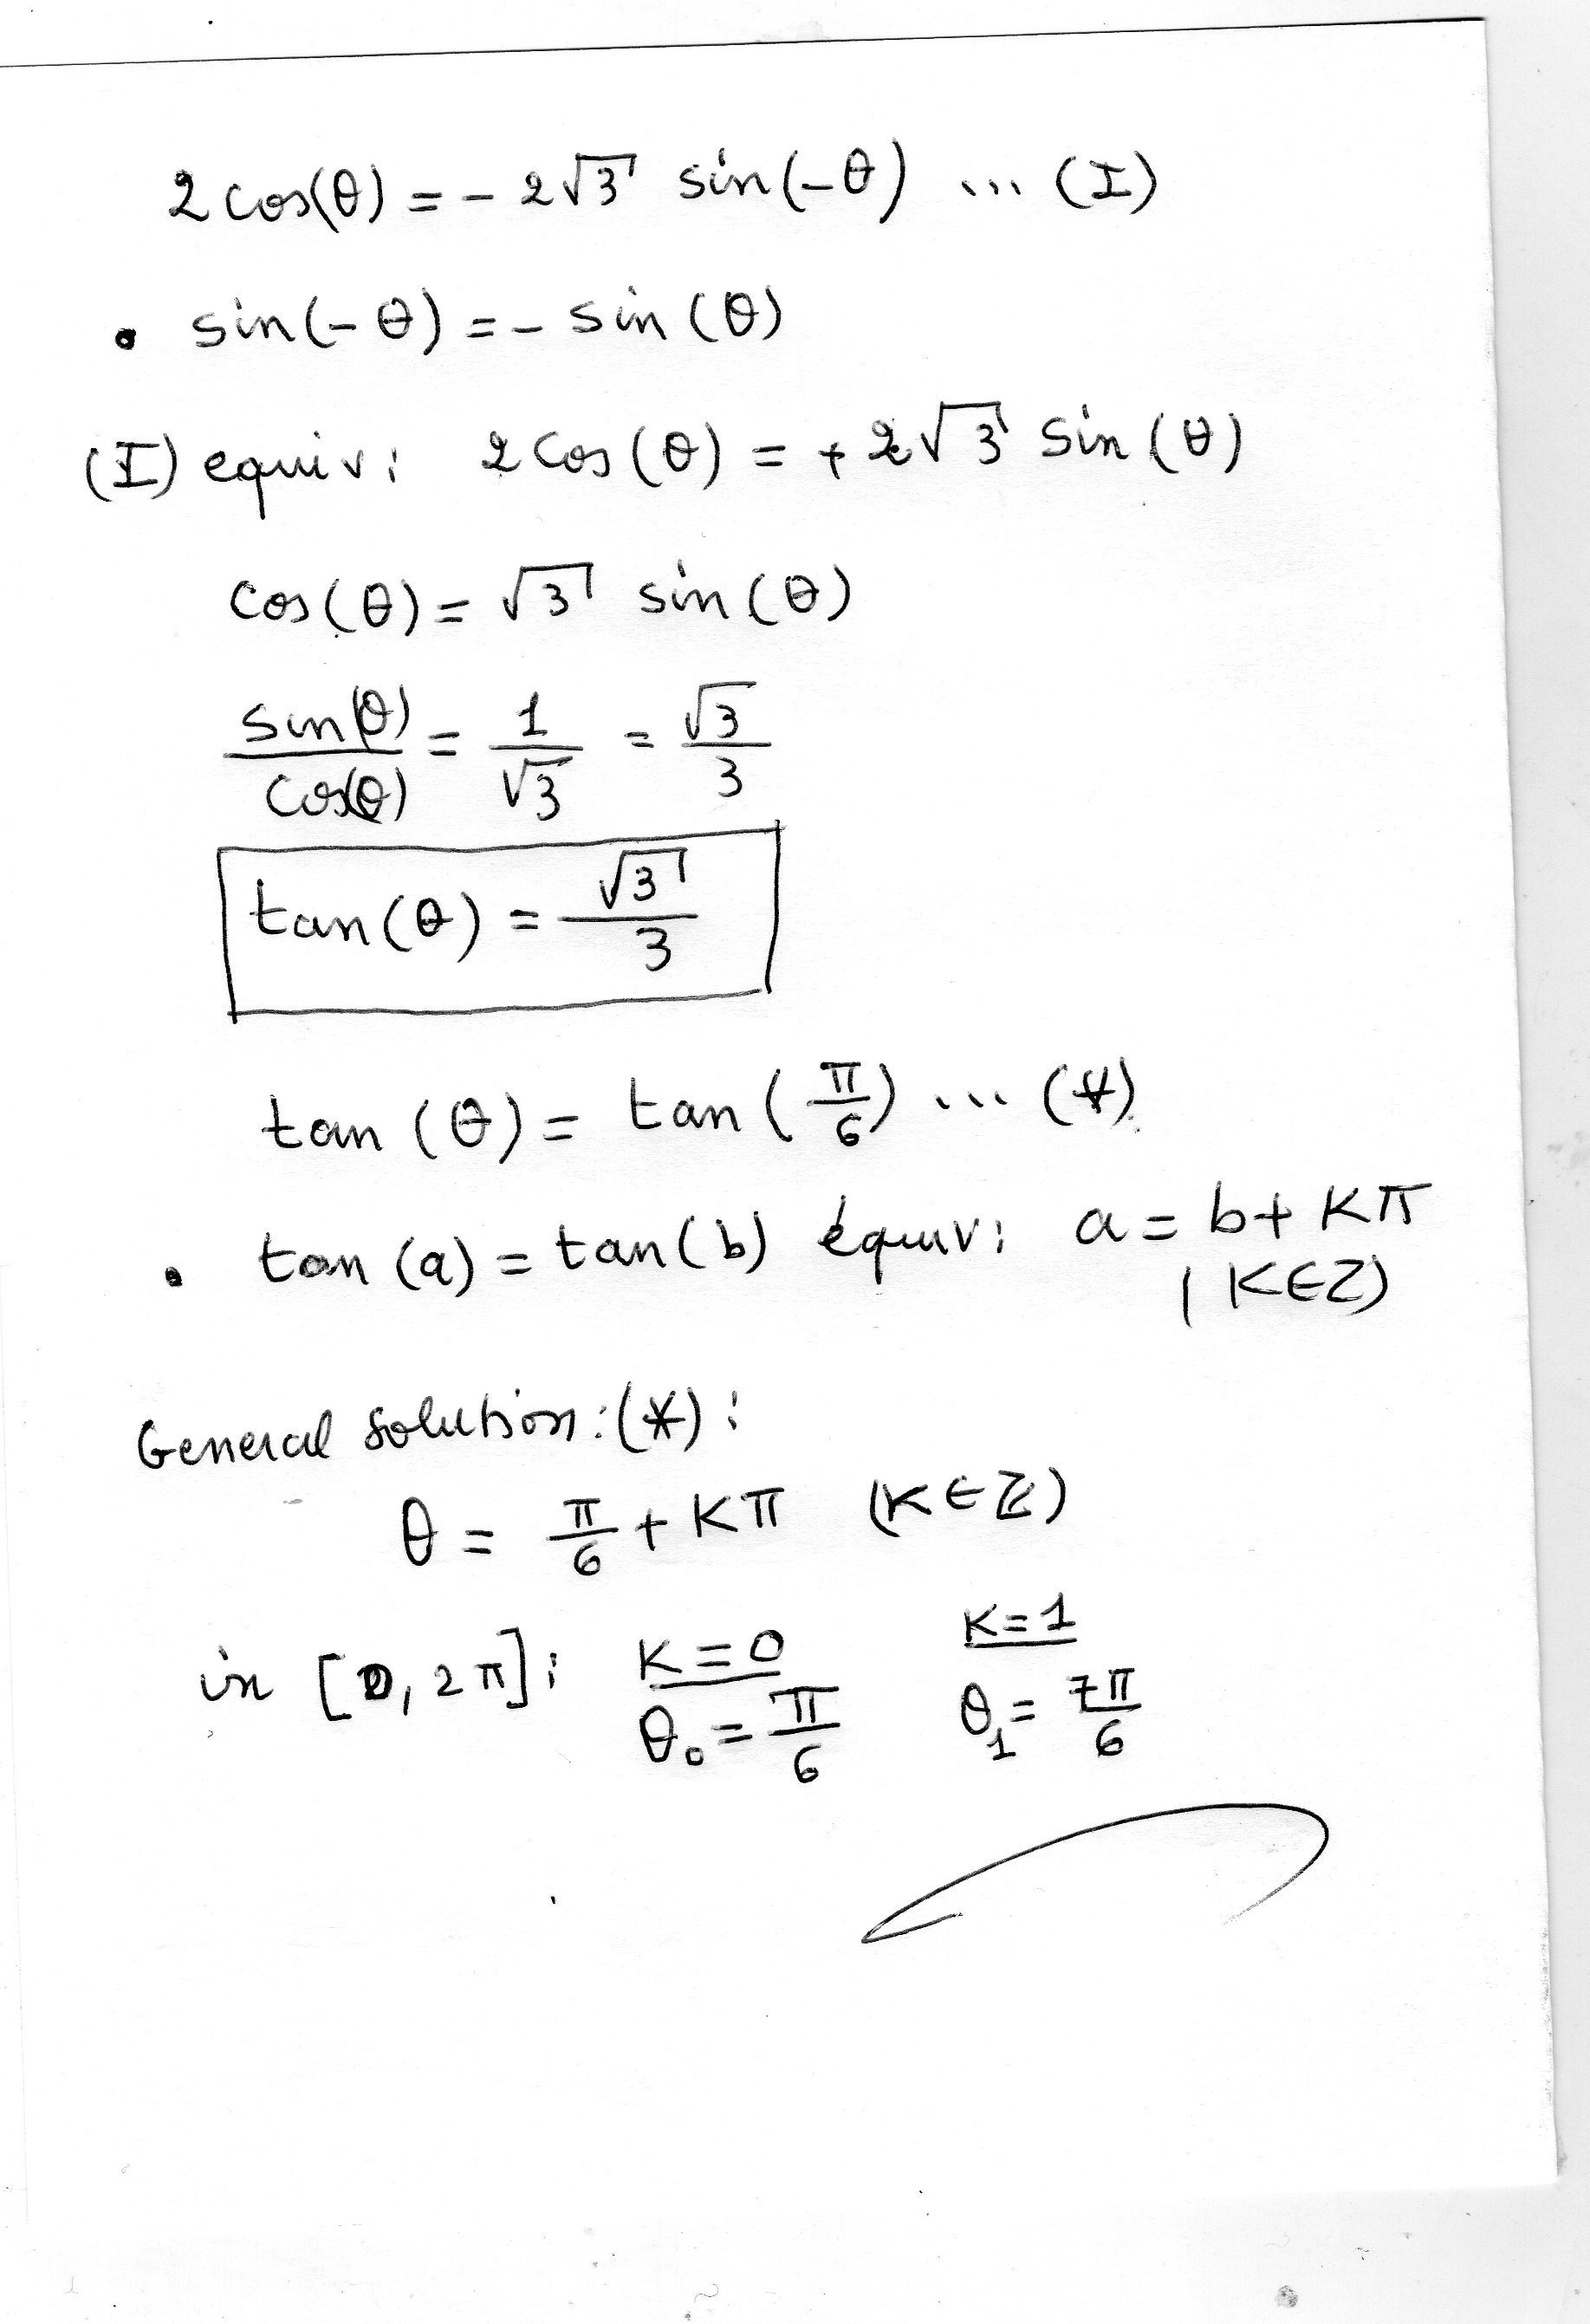 2 cos(θ) = - 2√3 sin(-θ) ... (I)
• sin(-θ) = - sin(θ)
(I) equiv: 2 cos(θ) = + 2√3 sin(θ)
cos(θ) = √3 sin(θ)
sin(θ)/cos(θ) = 1/√3 = √3/3
tan(θ) = √3/3
tan(θ) = tan(π/6) ... (*)
• tan(a) = tan(b) équiv: a = b + Kπ
(K∈Z)
General solution: (*):
θ = π/6 + Kπ (K∈Z)
in [0, 2π]: K=0 K=1
θ₀ = π/6 θ₁ = 7π/6